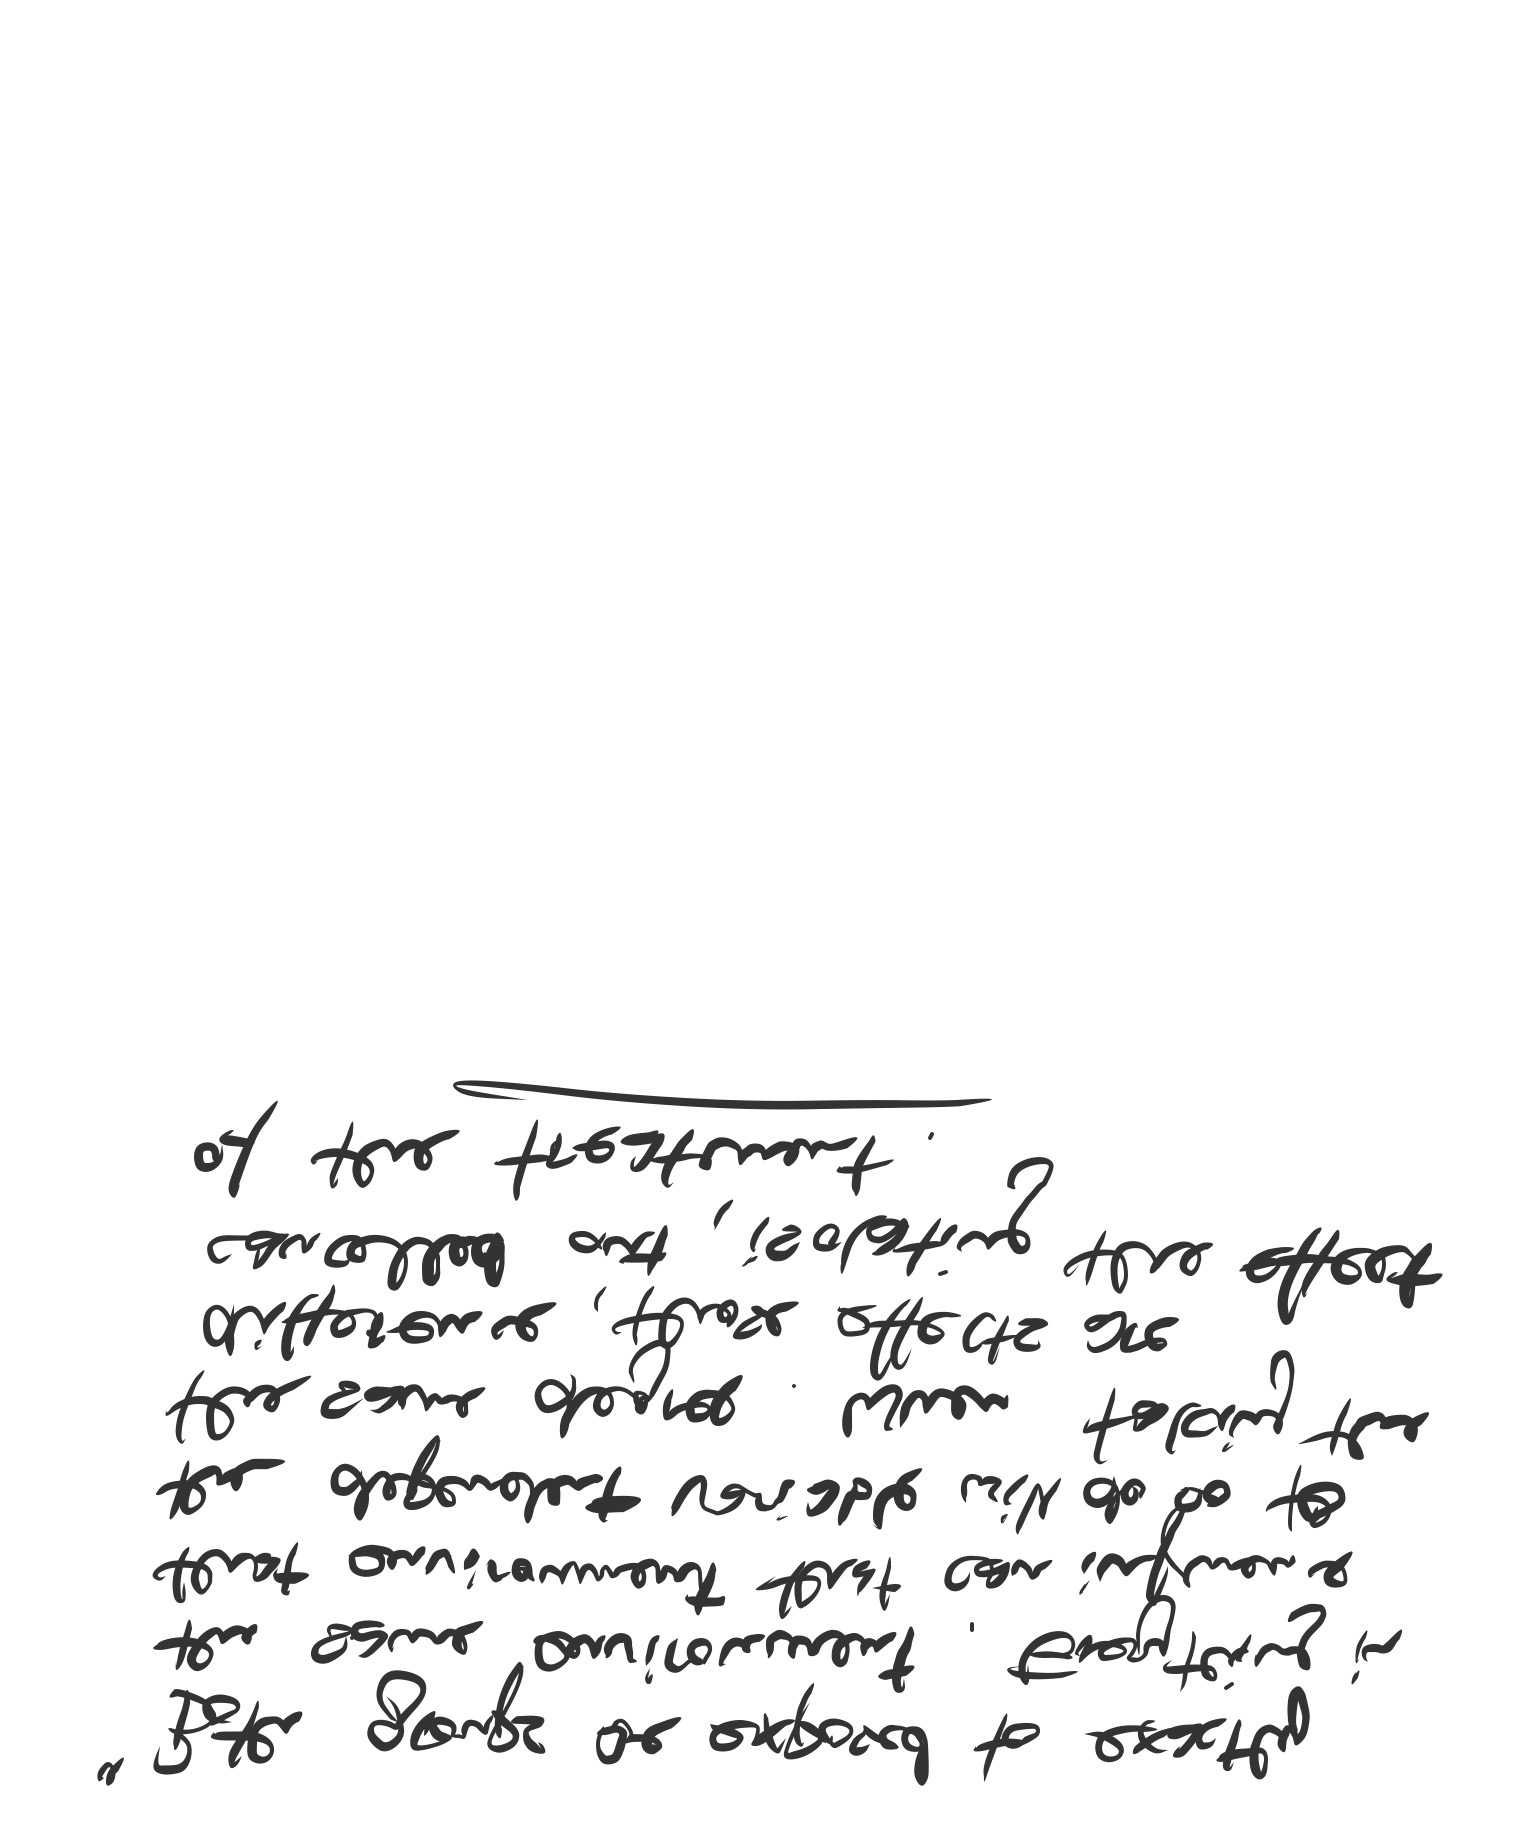 " Both groups are exposed to exactly
the same environment. Everything in
that environment that can influence
the dependent variable will do so to
the same degree. When taking the
difference, those effects are
cancelled out, isolating the effect
of the treatment.